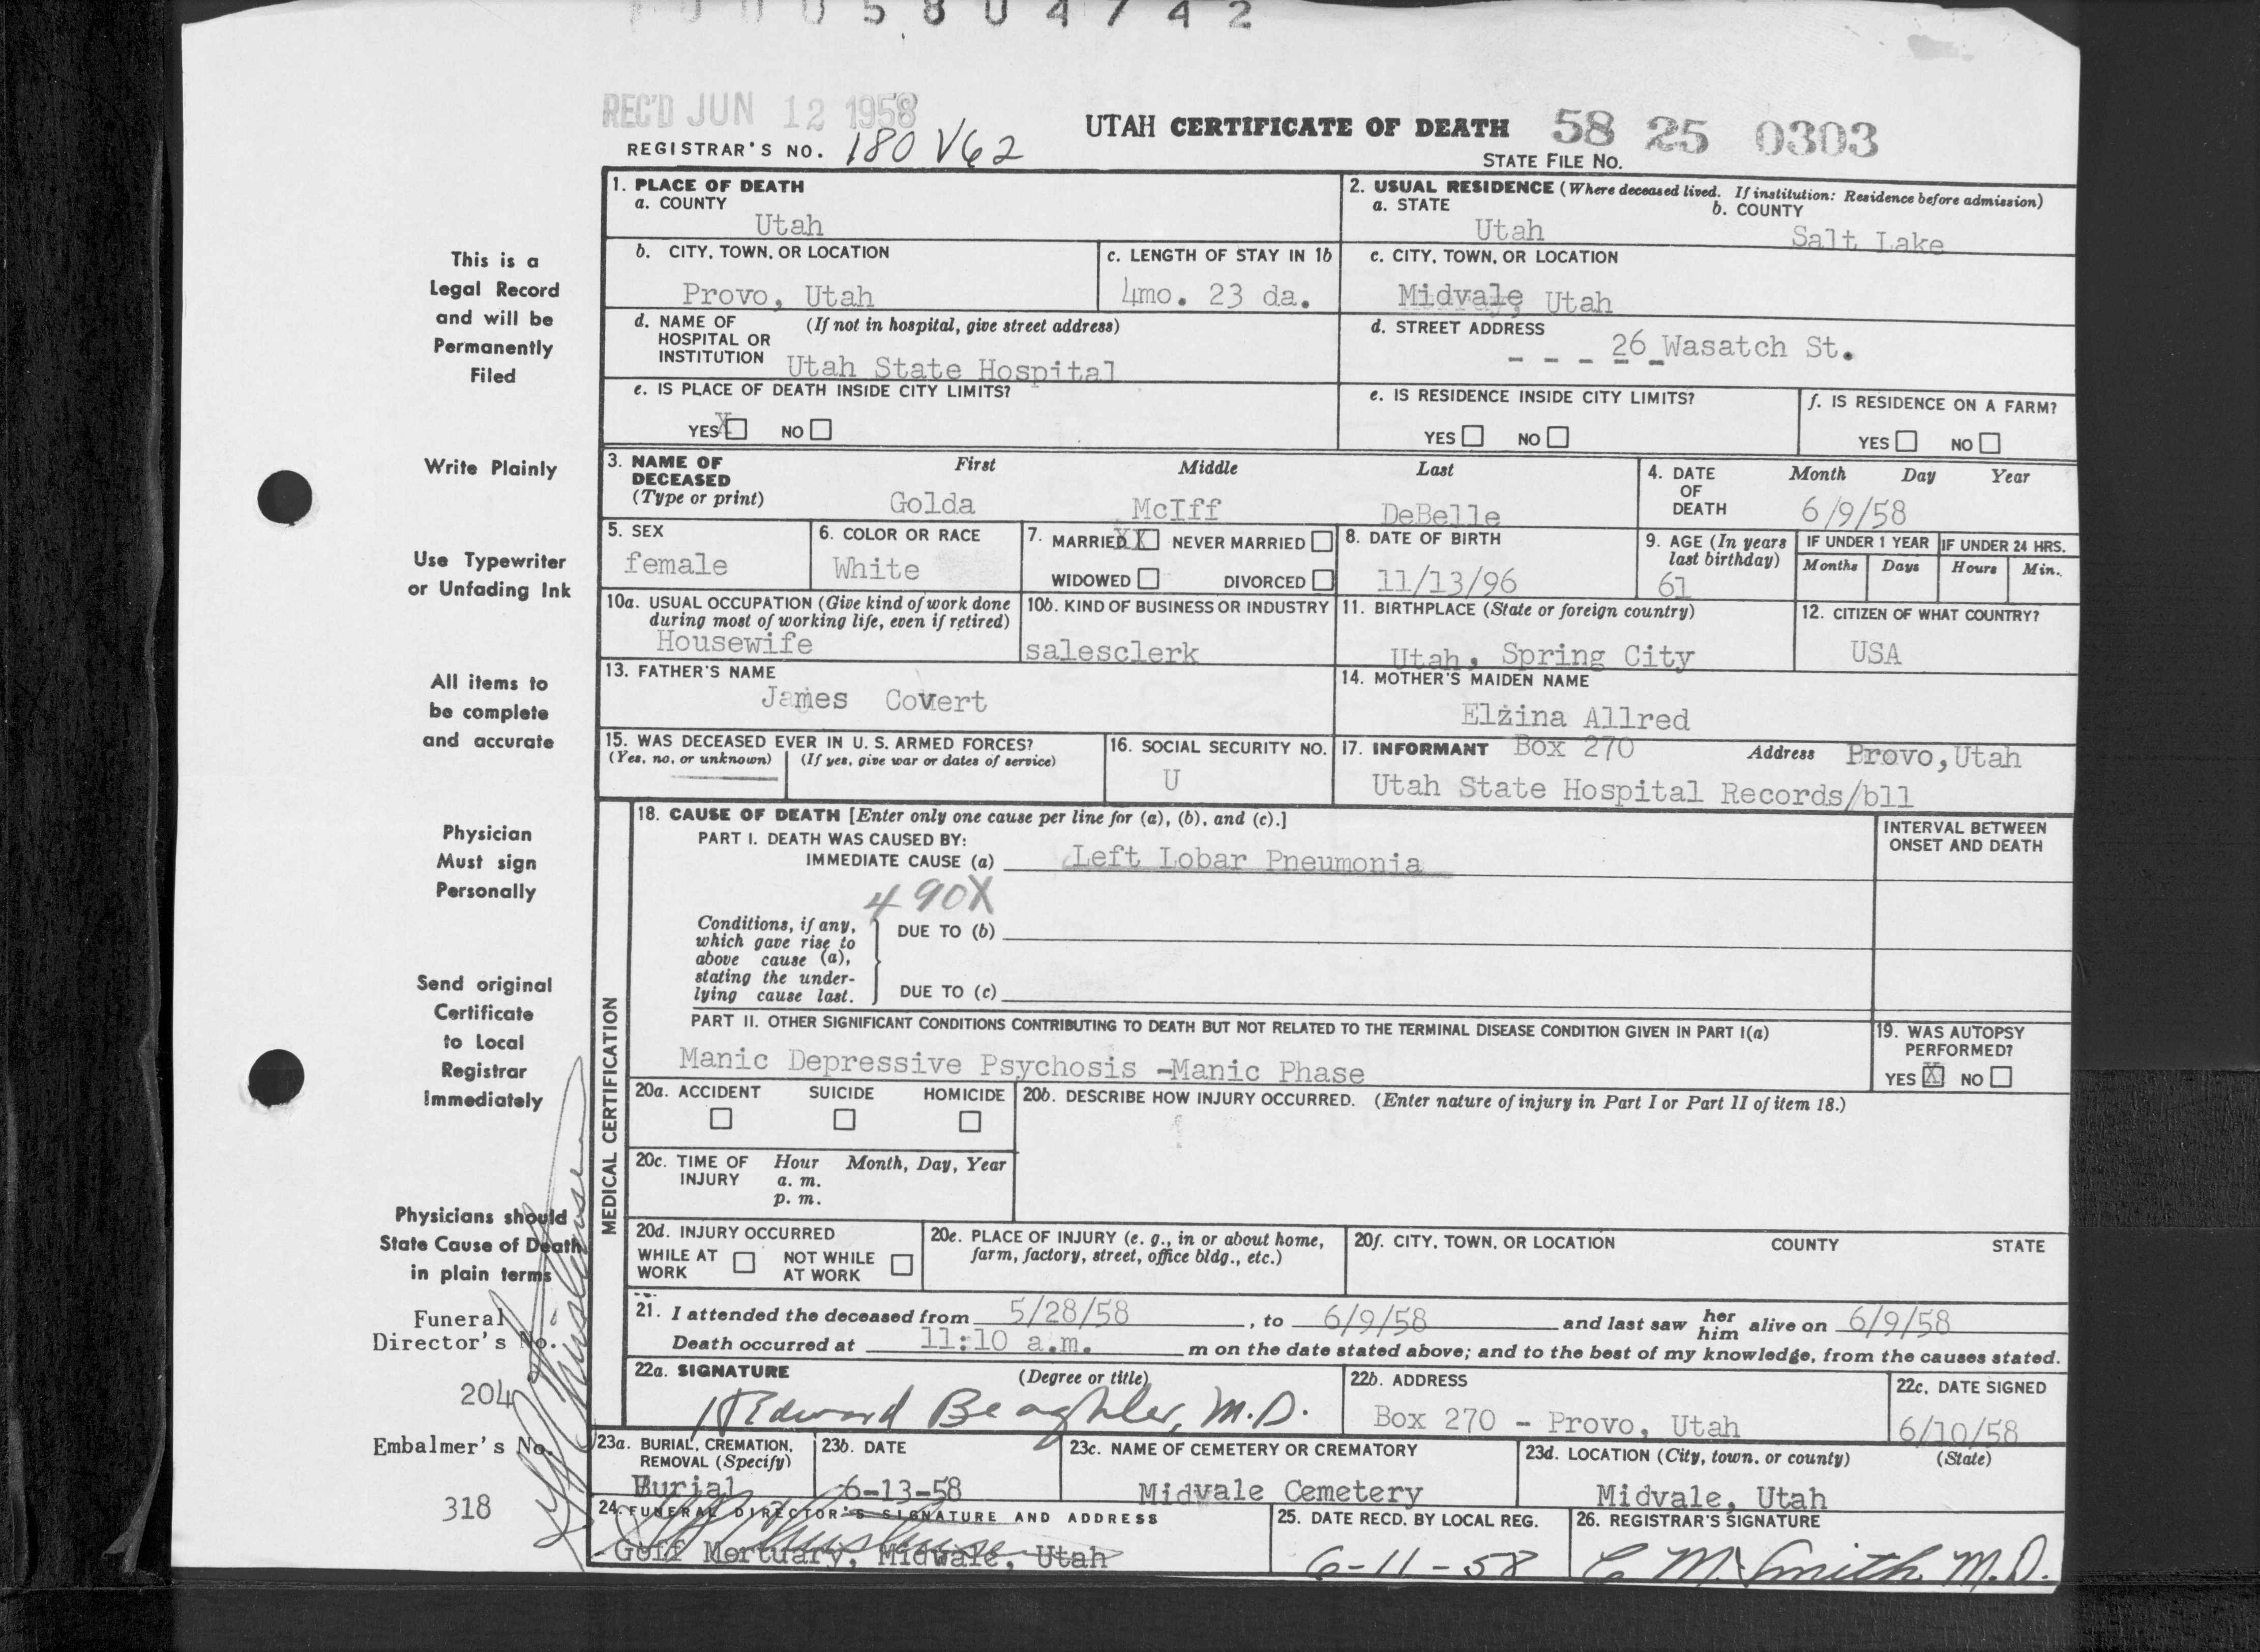 5 8 0 4 7 4 2
REC'D JUN 12 1958
UTAH CERTIFICATE OF DEATH 58 25 0303
REGISTRAR'S NO. 180 V62
STATE FILE NO.
This is a Legal Record and will be Permanently Filed
Write Plainly
Use Typewriter or Unfading Ink
All items to be complete and accurate
Physician Must sign Personally
Send original Certificate to Local Registrar immediately
Physicians should State Cause of Death in plain terms
Funeral Director's No.
204
Embalmer's No.
318
1. PLACE OF DEATH
a. COUNTY
Utah
2. USUAL RESIDENCE (Where deceased lived. If institution: Residence before admission)
a. STATE b. COUNTY
Utah Salt Lake
b. CITY, TOWN, OR LOCATION
Provo, Utah
c. LENGTH OF STAY IN 1b
4mo. 23 da.
c. CITY, TOWN, OR LOCATION
Midvale, Utah
d. NAME OF HOSPITAL OR INSTITUTION (If not in hospital, give street address)
Utah State Hospital
d. STREET ADDRESS
- - - 26 Wasatch St.
e. IS PLACE OF DEATH INSIDE CITY LIMITS?
YES X NO
e. IS RESIDENCE INSIDE CITY LIMITS?
YES NO
f. IS RESIDENCE ON A FARM?
YES NO
3. NAME OF DECEASED (Type or print) First Middle Last
Golda McIff DeBelle
4. DATE OF DEATH Month Day Year
6/9/58
5. SEX
female
6. COLOR OR RACE
White
7. MARRIED XX NEVER MARRIED
WIDOWED DIVORCED
8. DATE OF BIRTH
11/13/96
9. AGE (In years last birthday)
61
IF UNDER 1 YEAR IF UNDER 24 HRS.
Months Days Hours Min.
10a. USUAL OCCUPATION (Give kind of work done during most of working life, even if retired)
Housewife
10b. KIND OF BUSINESS OR INDUSTRY
salesclerk
11. BIRTHPLACE (State or foreign country)
Utah, Spring City
12. CITIZEN OF WHAT COUNTRY?
USA
13. FATHER'S NAME
James Covert
14. MOTHER'S MAIDEN NAME
Elzina Allred
15. WAS DECEASED EVER IN U. S. ARMED FORCES?
(Yes, no, or unknown) (If yes, give war or dates of service)
16. SOCIAL SECURITY NO.
U
17. INFORMANT Box 270 Address Provo, Utah
Utah State Hospital Records/bll
MEDICAL CERTIFICATION
18. CAUSE OF DEATH [Enter only one cause per line for (a), (b), and (c).]
PART I. DEATH WAS CAUSED BY:
IMMEDIATE CAUSE (a) Left Lobar Pneumonia
INTERVAL BETWEEN ONSET AND DEATH
490X
Conditions, if any, which gave rise to above cause (a), stating the underlying cause last.
DUE TO (b)
DUE TO (c)
PART II. OTHER SIGNIFICANT CONDITIONS CONTRIBUTING TO DEATH BUT NOT RELATED TO THE TERMINAL DISEASE CONDITION GIVEN IN PART I(a)
Manic Depressive Psychosis -Manic Phase
19. WAS AUTOPSY PERFORMED?
YES X NO
20a. ACCIDENT SUICIDE HOMICIDE
20b. DESCRIBE HOW INJURY OCCURRED. (Enter nature of injury in Part I or Part II of item 18.)
20c. TIME OF INJURY Hour Month, Day, Year
a. m.
p. m.
20d. INJURY OCCURRED
WHILE AT WORK NOT WHILE AT WORK
20e. PLACE OF INJURY (e. g., in or about home, farm, factory, street, office bldg., etc.)
20f. CITY, TOWN, OR LOCATION COUNTY STATE
21. I attended the deceased from 5/28/58, to 6/9/58 and last saw her him alive on 6/9/58
Death occurred at 11:10 a.m. m on the date stated above; and to the best of my knowledge, from the causes stated.
22a. SIGNATURE (Degree or title)
Edward Beaghler, M.D.
22b. ADDRESS
Box 270 - Provo, Utah
22c. DATE SIGNED
6/10/58
23a. BURIAL, CREMATION, REMOVAL (Specify)
Burial
23b. DATE
6-13-58
23c. NAME OF CEMETERY OR CREMATORY
Midvale Cemetery
23d. LOCATION (City, town, or county) (State)
Midvale, Utah
24. FUNERAL DIRECTOR'S SIGNATURE AND ADDRESS
Goff Mortuary, Midvale, Utah
25. DATE RECD. BY LOCAL REG.
6-11-58
26. REGISTRAR'S SIGNATURE
C M Smith M.D.